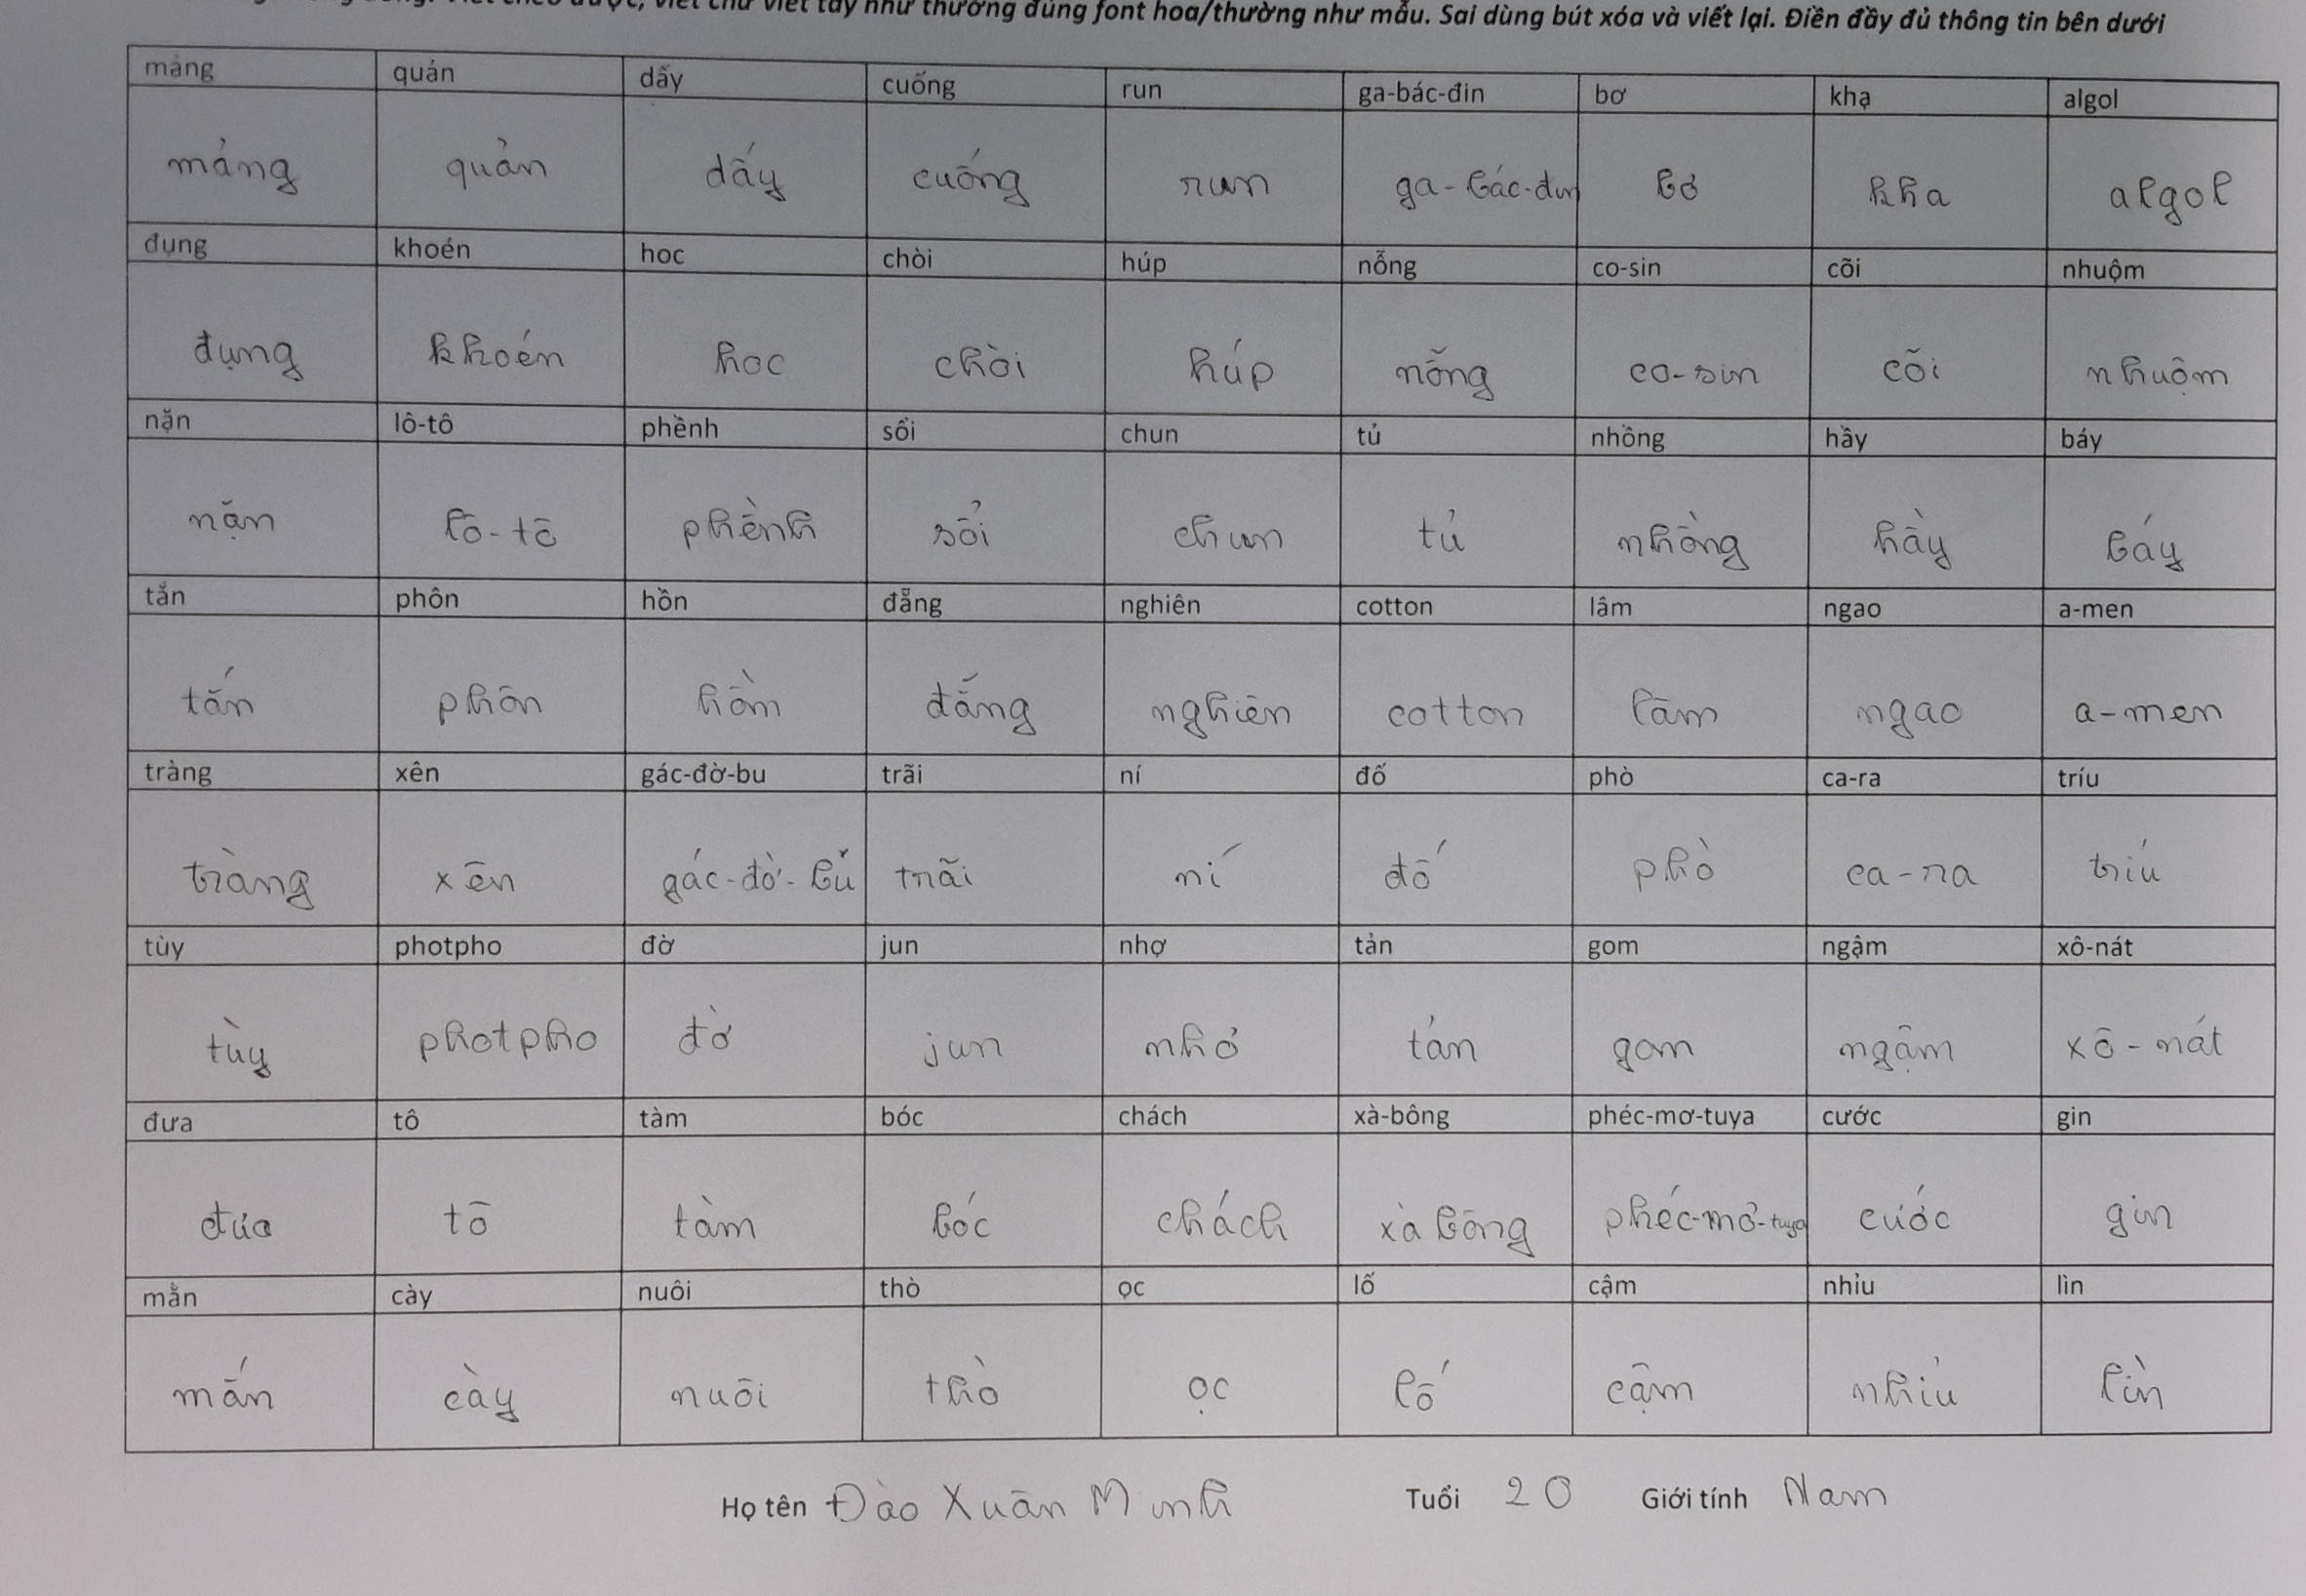 viết chữ viết tay như thường đúng font hoa/thường như mẫu. Sai dùng bút xóa và viết lại. Điền đầy đủ thông tin bên dưới
mảng quản dấy cuống run ga-bác-đin bơ khạ algol
mảng quản dấy cuống run ga-bác-đin bơ kha algol
đụng khoén hoc chòi húp nỗng co-sin cõi nhuộm
đụng khoén hoc chòi húp nỗng co-sin cõi nhuộm
nặn lô-tô phềnh sổi chun tủ nhồng hầy báy
nặn lô-tô phềnh sổi chun tủ nhồng hầy báy
tắn phôn hồn đẵng nghiên cotton lâm ngao a-men
tắn phôn hồn đẵng nghiên cotton lâm ngao a-men
tràng xên gác-đờ-bu trãi ní đố phò ca-ra tríu
tràng xên gác-đờ-bu trãi ní đố phò ca-ra tríu
tùy photpho đờ jun nhợ tản gom ngậm xô-nát
tùy photpho đờ jun nhở tản gom ngậm xô-nát
đưa tô tàm bóc chách xà-bông phéc-mơ-tuya cước gin
đưa tô tàm bóc chách xà bông phéc-mơ-tuya cước gin
mằn cày nuôi thò ọc lố cậm nhỉu lìn
mắn cày nuôi thò ọc lố cậm nhỉu lìn
Họ tên Đào Xuân Minh Tuổi 20 Giới tính Nam